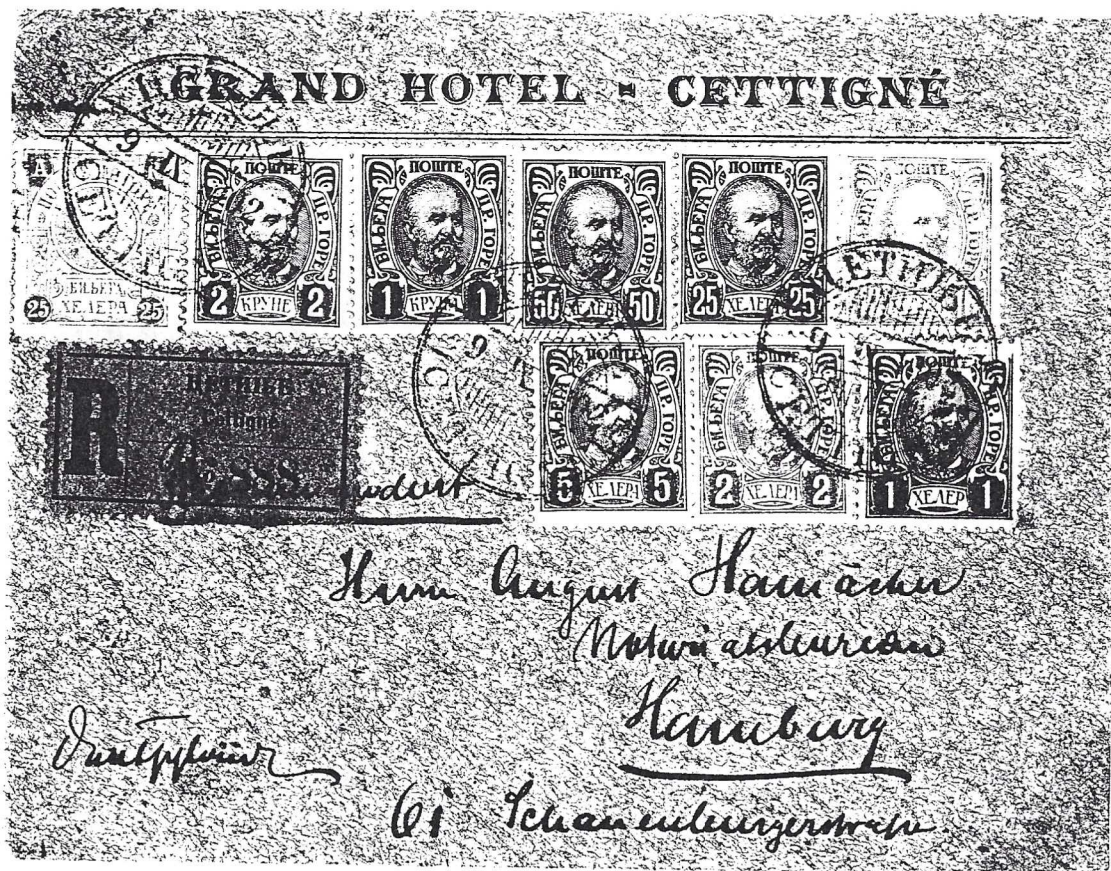 GRAND HOTEL - CETTIGNÉ
А Р
БИЉЕГА
25 ХЕЛЕРА 25
ПОШТЕ
БИЉЕГА ЦР. ГОРЕ
2 КРУНЕ 2
ПОШТЕ
БИЉЕГА ЦР. ГОРЕ
1 КРУНА 1
ПОШТЕ
БИЉЕГА ЦР. ГОРЕ
50 ХЕЛЕРА 50
ПОШТЕ
БИЉЕГА ЦР. ГОРЕ
25 ХЕЛЕРА 25
ПОШТЕ
ЦЕТИЊЕ
CETTIGNE
R
ЦЕТИЊЕ
Cettigné
ПОШТЕ
БИЉЕГА ЦР. ГОРЕ
5 ХЕЛЕРА 5
ПОШТЕ
БИЉЕГА ЦР. ГОРЕ
2 ХЕЛЕРА 2
ПОШТЕ
БИЉЕГА ЦР. ГОРЕ
1 ХЕЛЕР 1
Herrn August
Notariatsbureau
Hamburg
Deutschland
61 Schauenburgerstrasse.